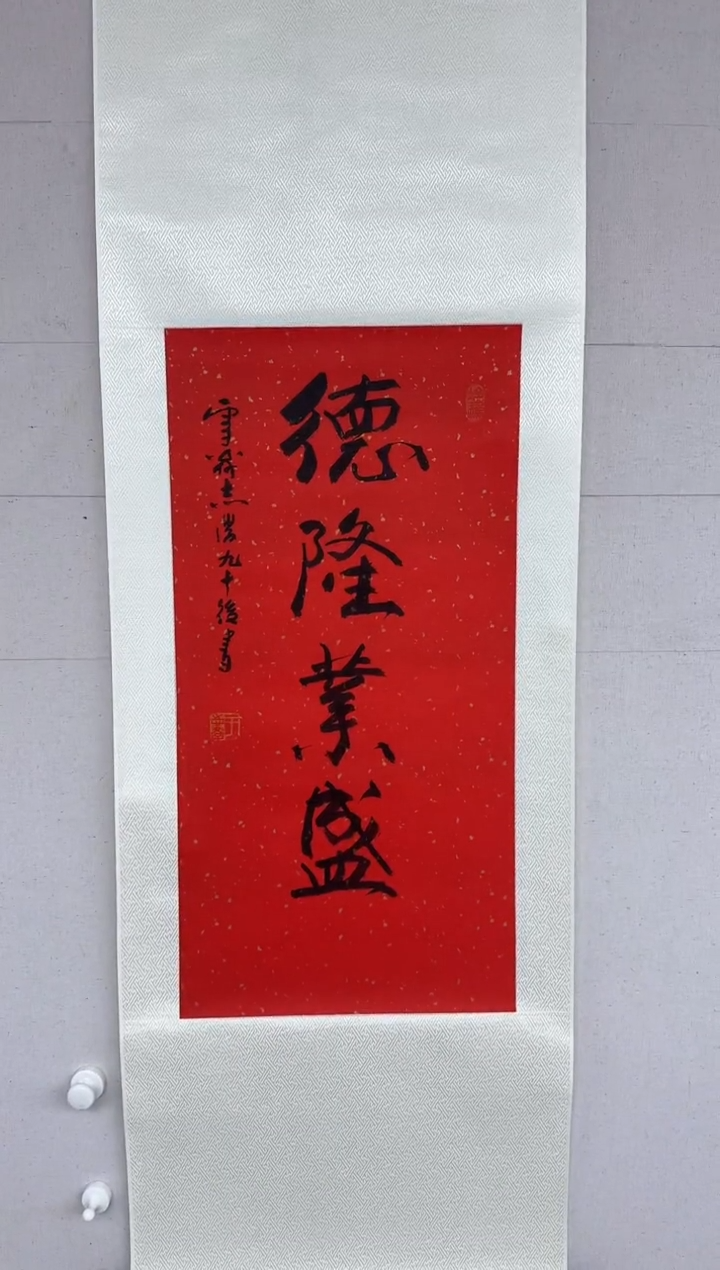 德隆業盛
志 九十後書